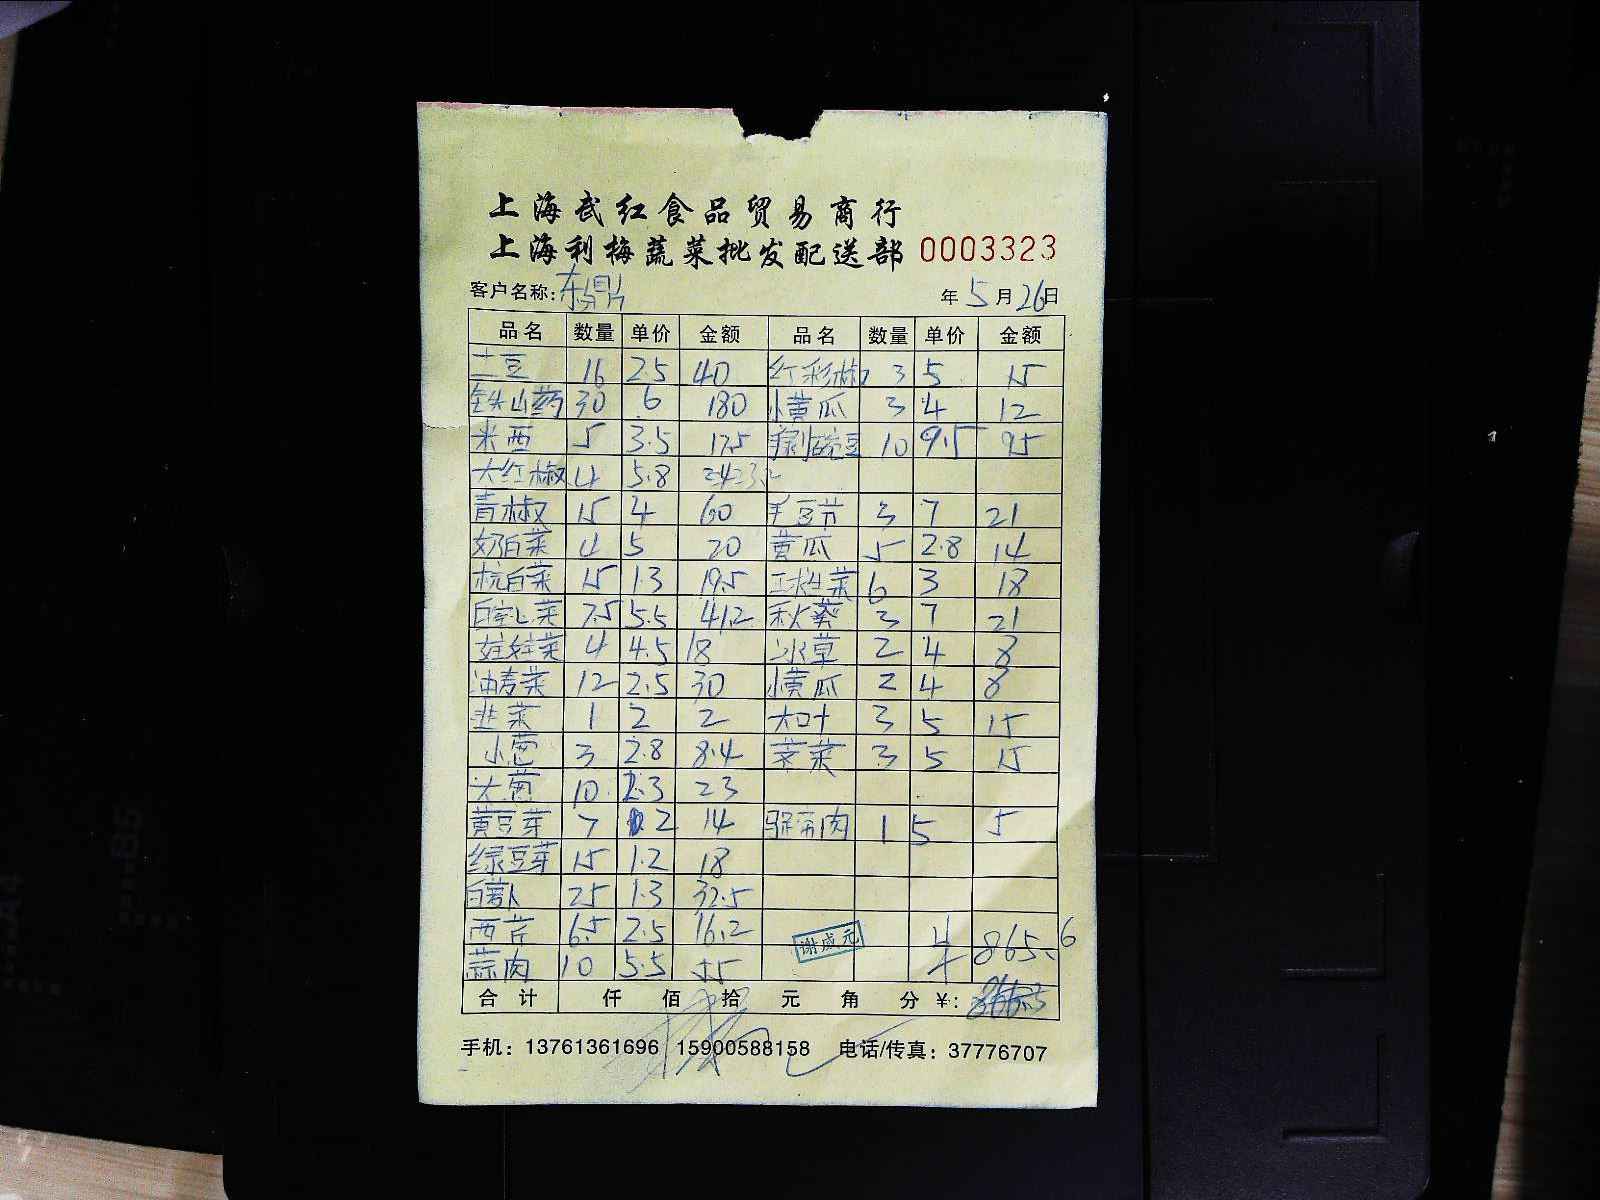 上海武红食品贸易商行
上海利梅蔬菜批发配送部 0003323
客户名称: 东鼎 年 5 月 26 日
品名 数量 单价 金额 品名 数量 单价 金额
土豆 16 2.5 40 红彩椒 3 5 15
铁山药 30 6 180 小黄瓜 3 4 12
米西 5 3.5 17.5 剥豌豆 10 9.5 95
大红椒 4 5.8
青椒 15 4 60 毛豆节 3 7 21
奶白菜 4 5 20 黄瓜 5 2.8 14
杭白菜 15 1.3 19.5 生菜 6 3 18
白空心菜 7.5 5.5 41.2 秋葵 3 7 21
娃娃菜 4 4.5 18 冰草 2 4 8
油麦菜 12 2.5 30 小黄瓜 2 4 8
韭菜 1 2 2 大叶 3 5 15
小葱 3 2.8 8.4 菜 3 5 15
大葱 10 2.3 23
黄豆芽 7 2 14 肉 1 5 5
绿豆芽 15 1.2 18
白萝卜 25 1.3 32.5
西芹 6.5 2.5 16.2 谢威元 865.6
蒜肉 10 5.5 55
合计 仟 佰 拾 元 角 分 ¥:
手机: 13761361696 15900588158 电话/传真: 37776707
B5
A4